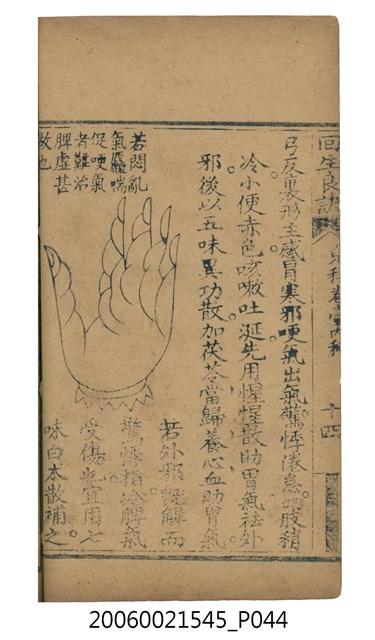 回生良訣
兒科卷壹內科
十四
弓反裏形主感冒寒邪哽氣出氣驚悸倦怠四肢稍
冷小便赤色咳嗽吐涎先用惺惺散助胃氣祛外
邪後以五味異功散加茯苓當歸養心血助胃氣
若外邪既解而
驚悸指冷脾氣
受傷也宜用七
味白朮散補之
若悶亂
氣麤喘
促哽氣
者難治
脾虛甚
故也
20060021545_P044